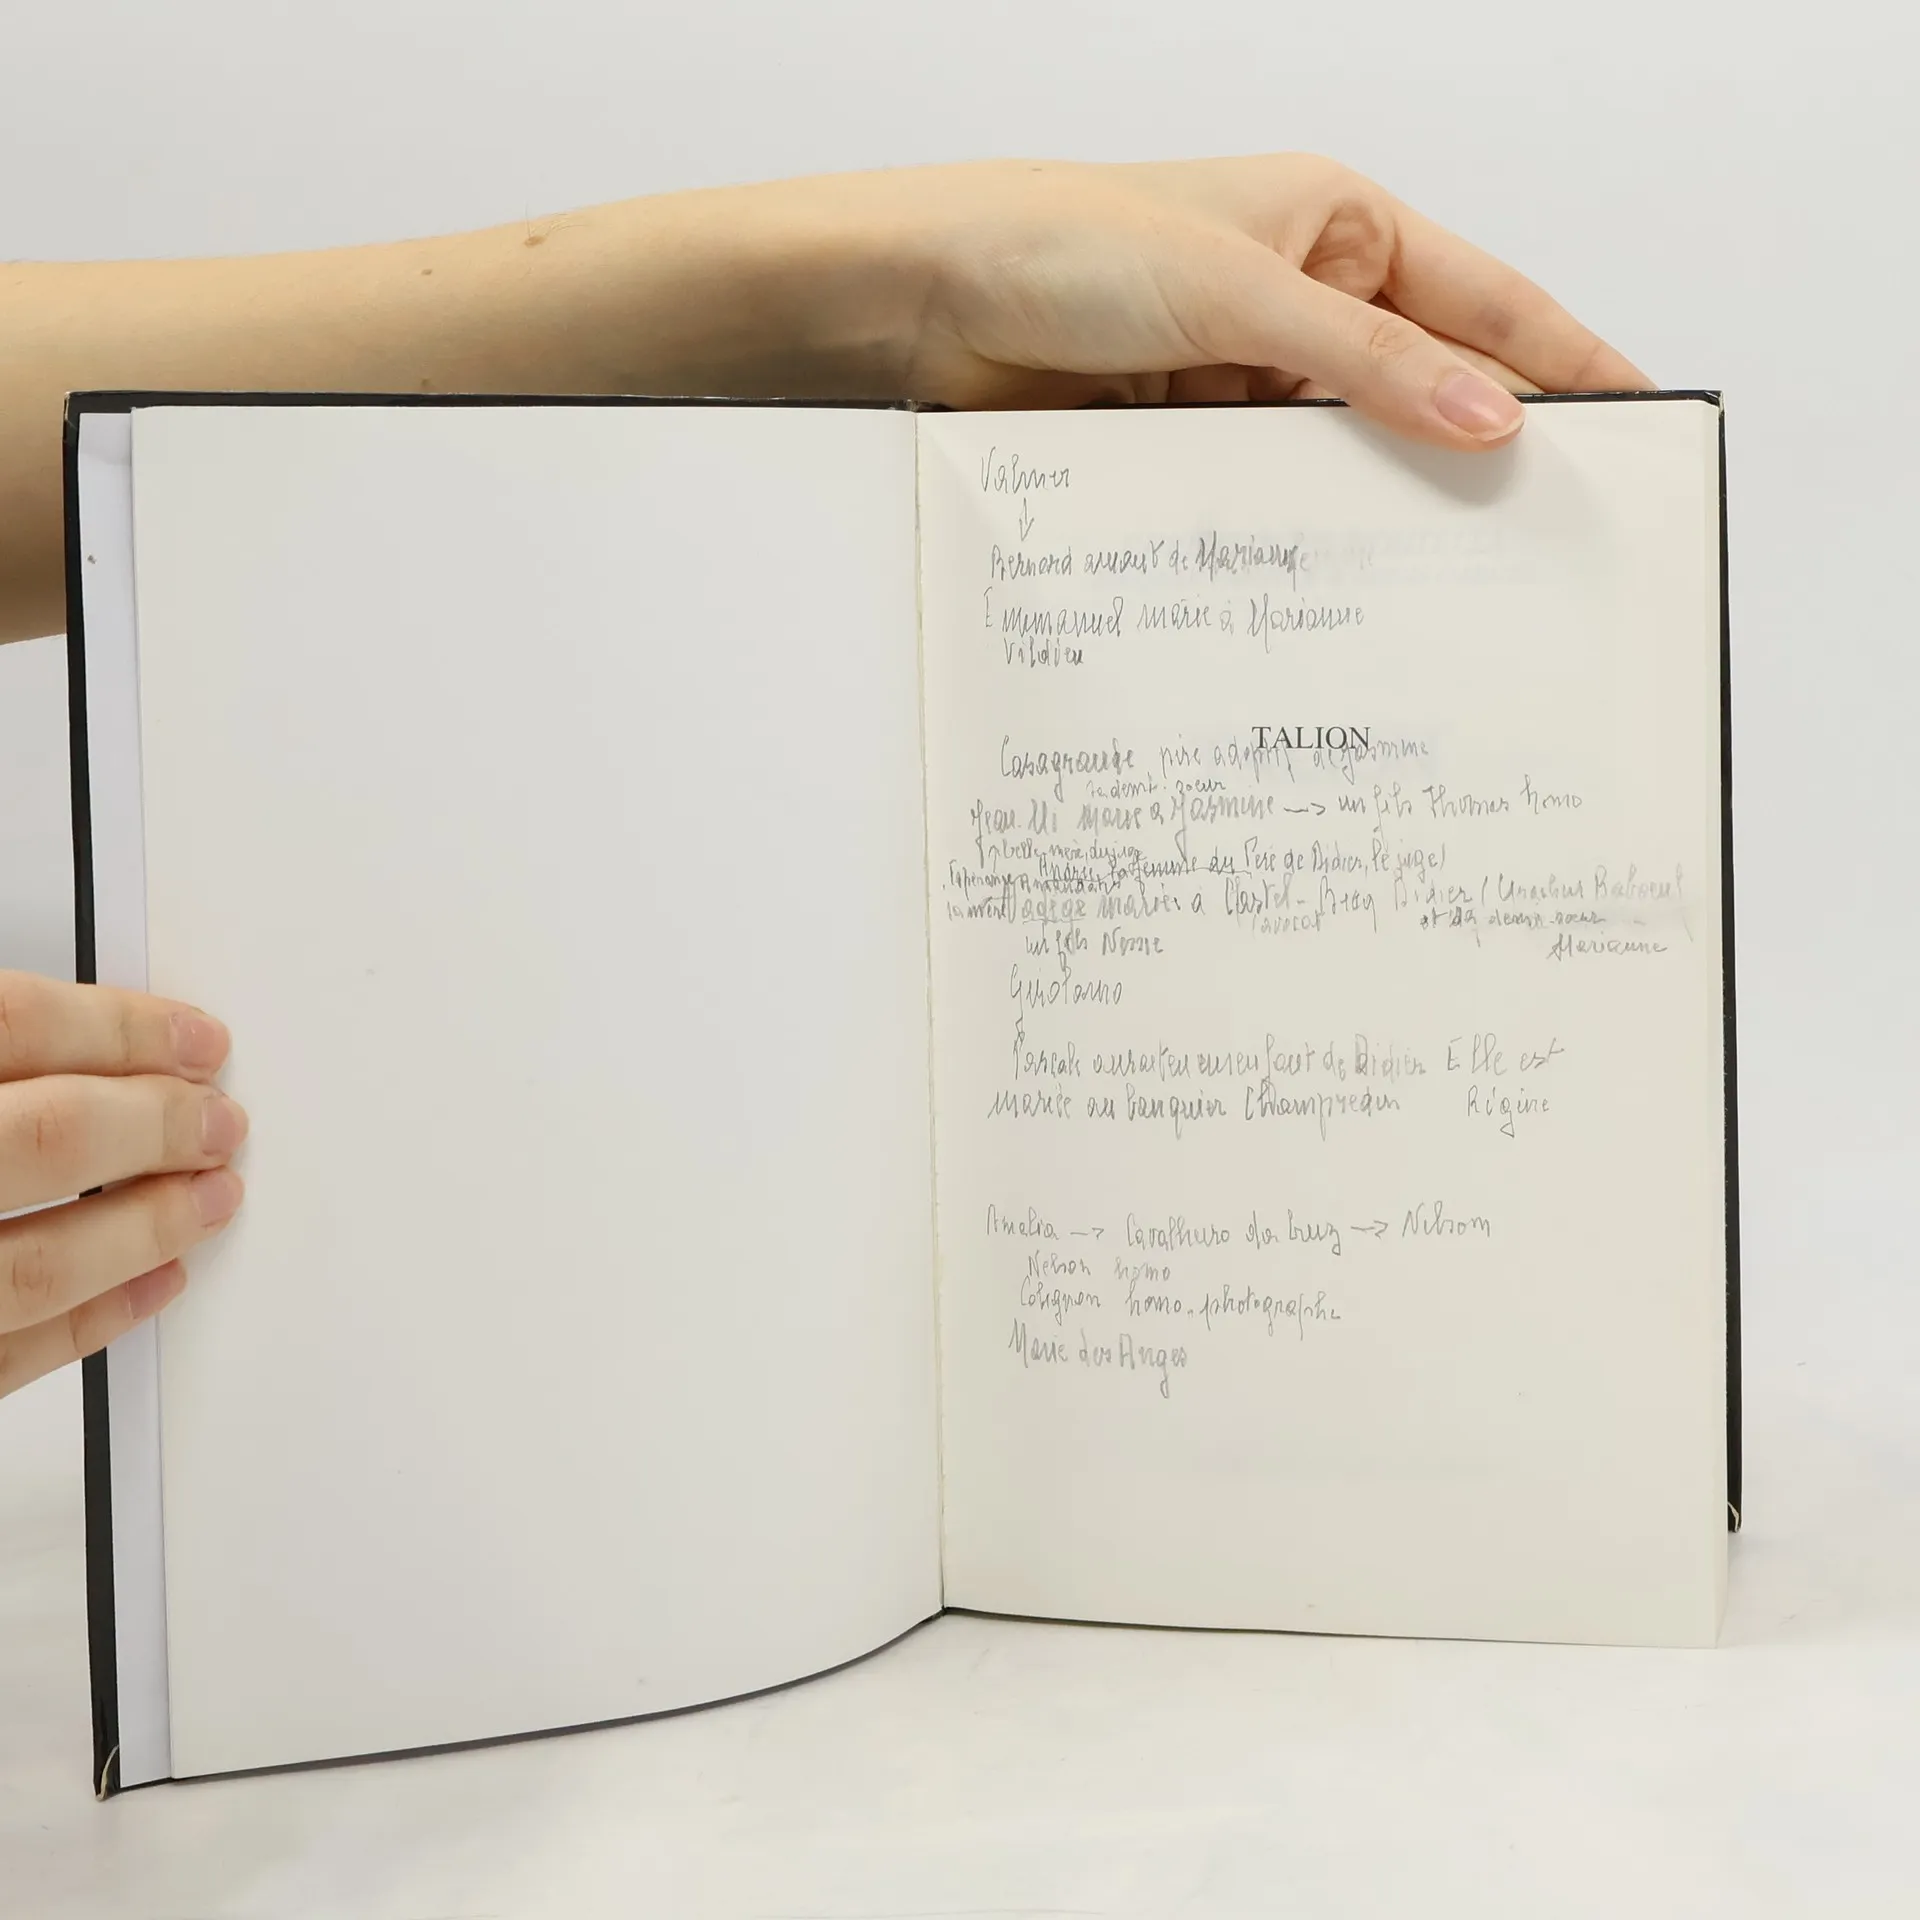 Valmer
Bernard amant de Marianne
Emmanuel marié à Marianne
Vildieu
TALION
Casagrande père adoptif de Jasmine
sa demi-soeur
Jean-Mi marié à Jasmine → un fils Thomas homo
belle-mère du juge
la femme du Père de Didier, le juge)
mariée à Castel-Brac Didier (
avocat et sa demi-soeur
un fils Marianne
Girolamo
Pascale aurait eu un enfant de Didier Elle est
mariée au banquier Champredun Régine
Amalia → Cavalheiro da Cruz → Nelson
Nelson homo
Colignon homo-photographe
Marie des Anges